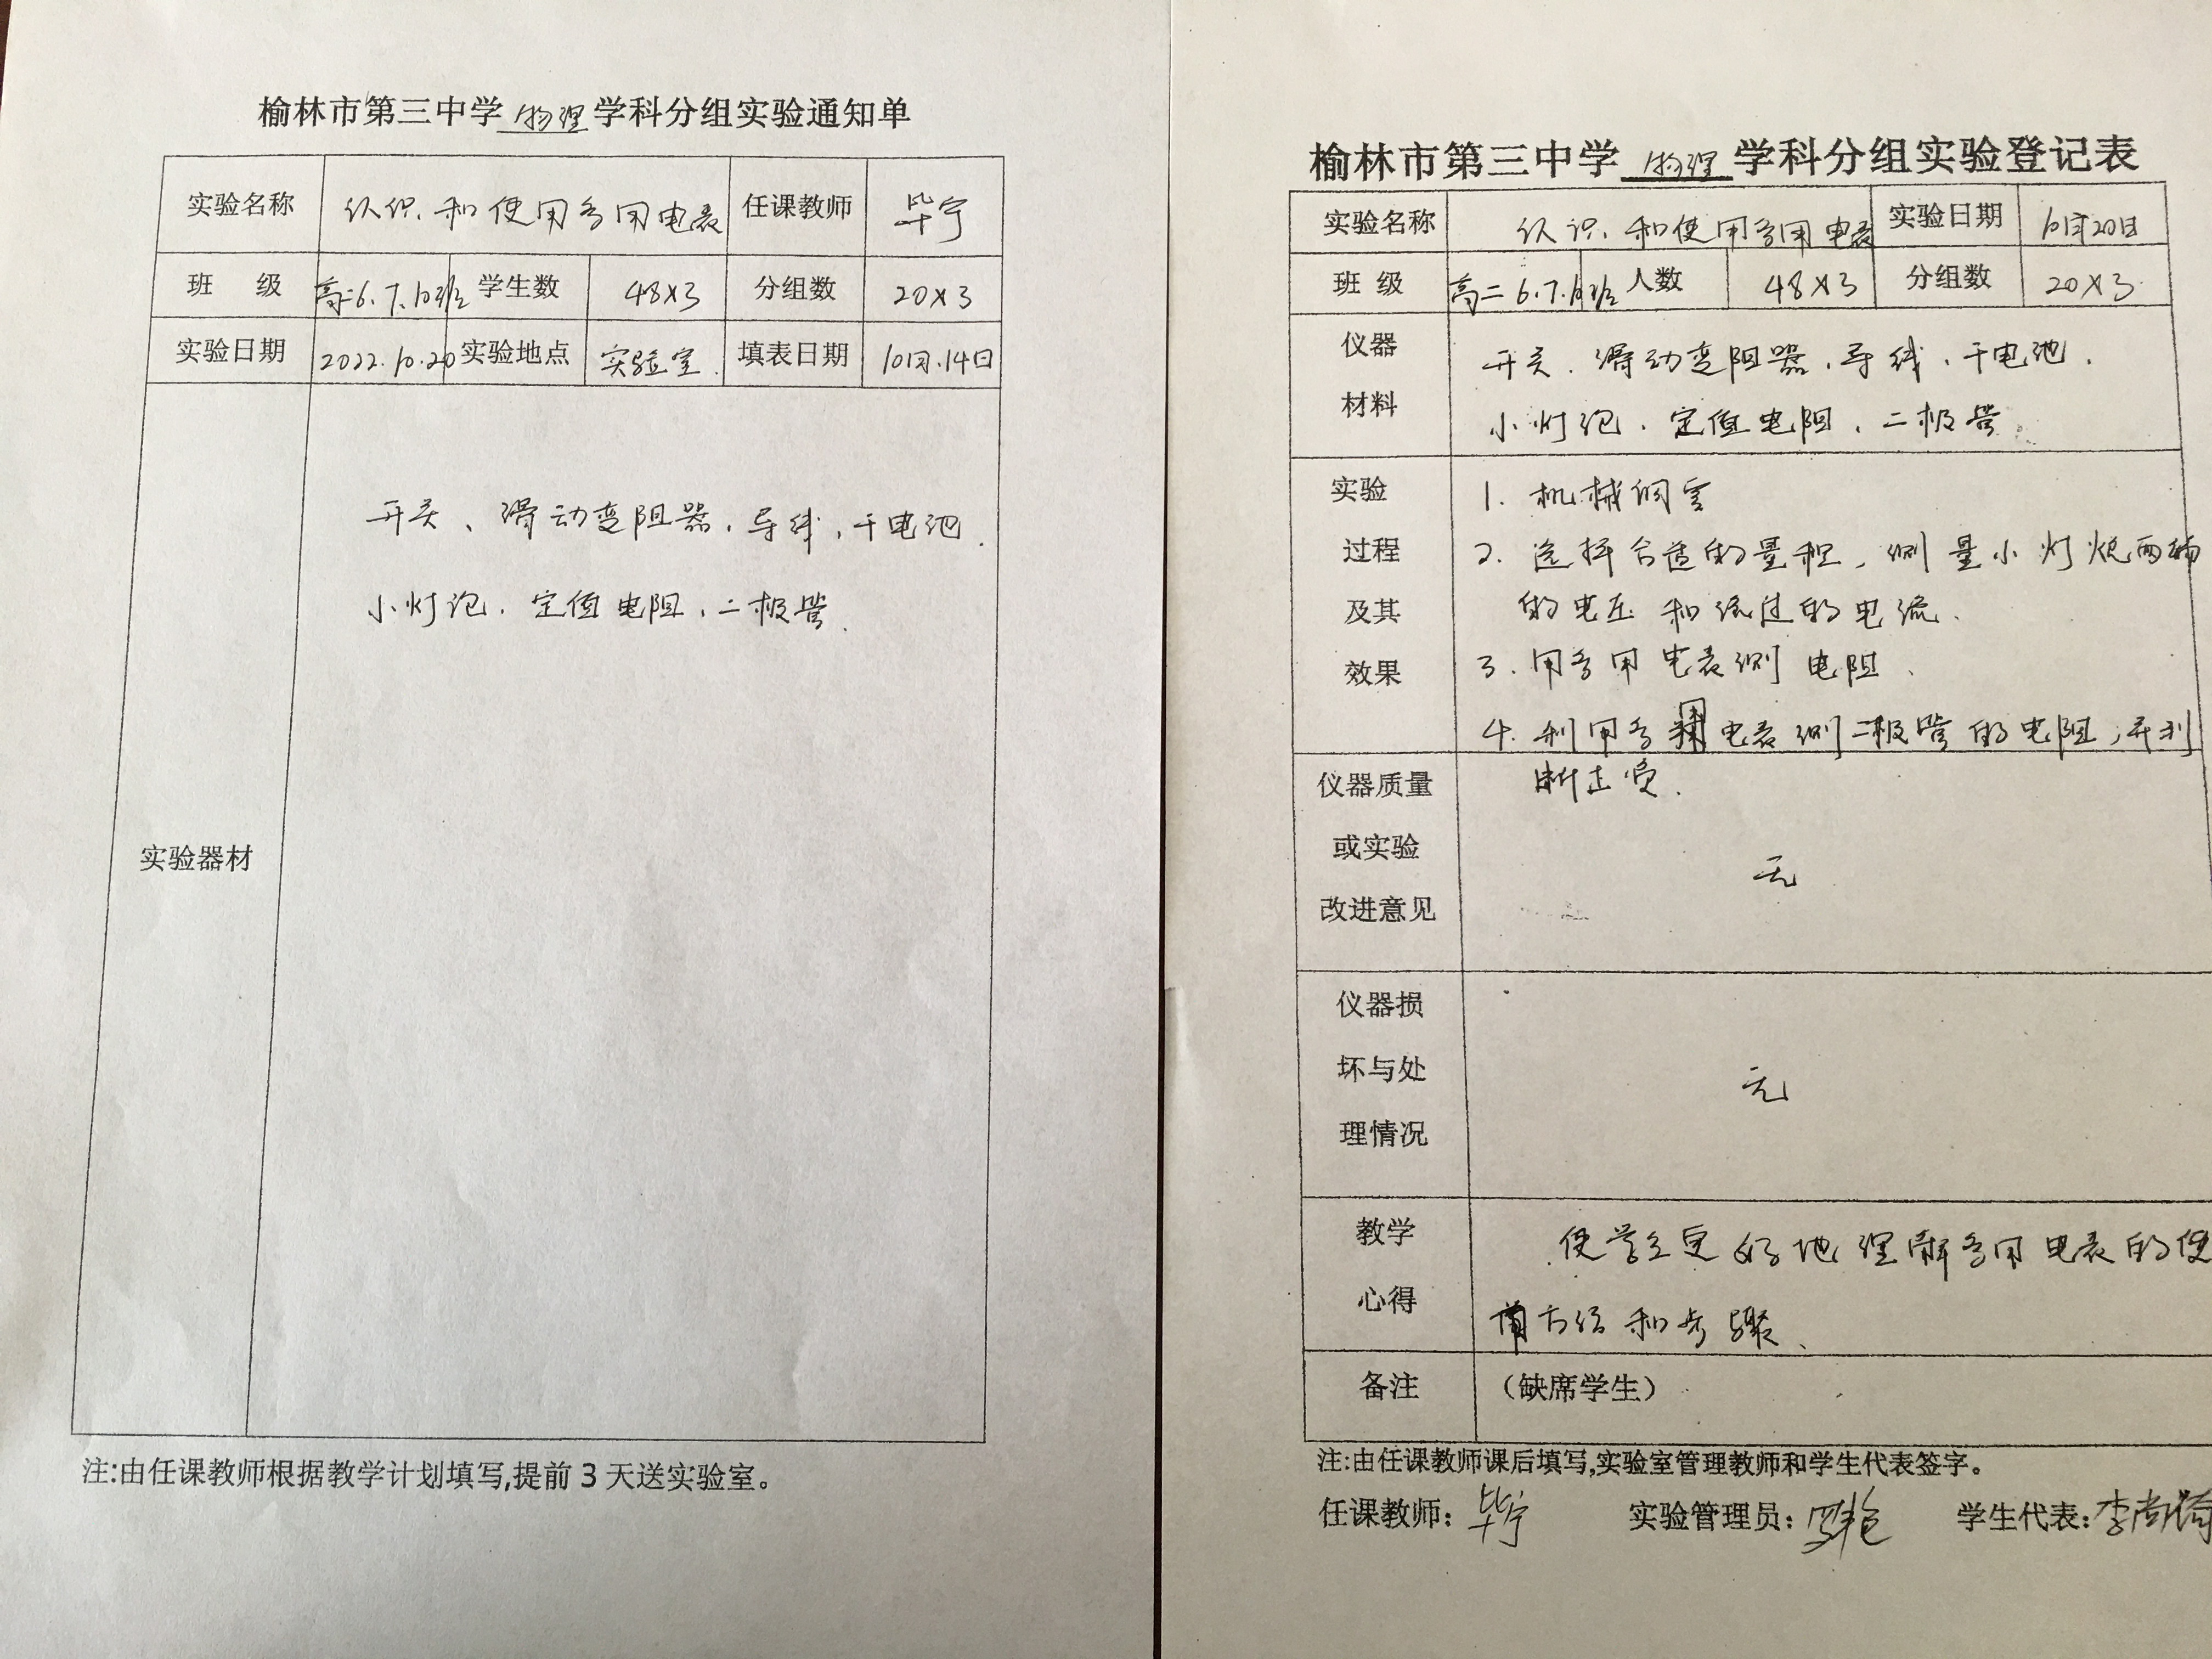 榆林市第三中学 物理 学科分组实验通知单
实验名称 认识和使用多用电表 任课教师 毕宁
班 级 高二6.7.10班 学生数 48×3 分组数 20×3
实验日期 2022.10.20 实验地点 实验室. 填表日期 10月.14日
开关、滑动变阻器.导线,干电池.
小灯泡.定值电阻.二极管.
实验器材
注:由任课教师根据教学计划填写,提前 3 天送实验室。
榆林市第三中学 物理 学科分组实验登记表
实验名称 认识和使用多用电表 实验日期 10月20日
班 级 高二 6.7.10班 人数 48×3 分组数 20×3
仪器
材料
开关.滑动变阻器.导线.干电池.
小灯泡.定值电阻.二极管.
实验
过程
及其
效果
1. 机械调零
2. 选择合适的量程,测量小灯炮两端
的电压和流过的电流.
3. 用多用电表测电阻.
4. 利用多用电表测二极管的电阻,并判
断正负.
仪器质量
或实验
改进意见
无
仪器损
坏与处
理情况
无
教学
心得
使学生更好地理解多用电表的使
用方法和步骤.
备注 (缺席学生)
注:由任课教师课后填写,实验室管理教师和学生代表签字。
任课教师: 毕宁 实验管理员: 学生代表: 李尚